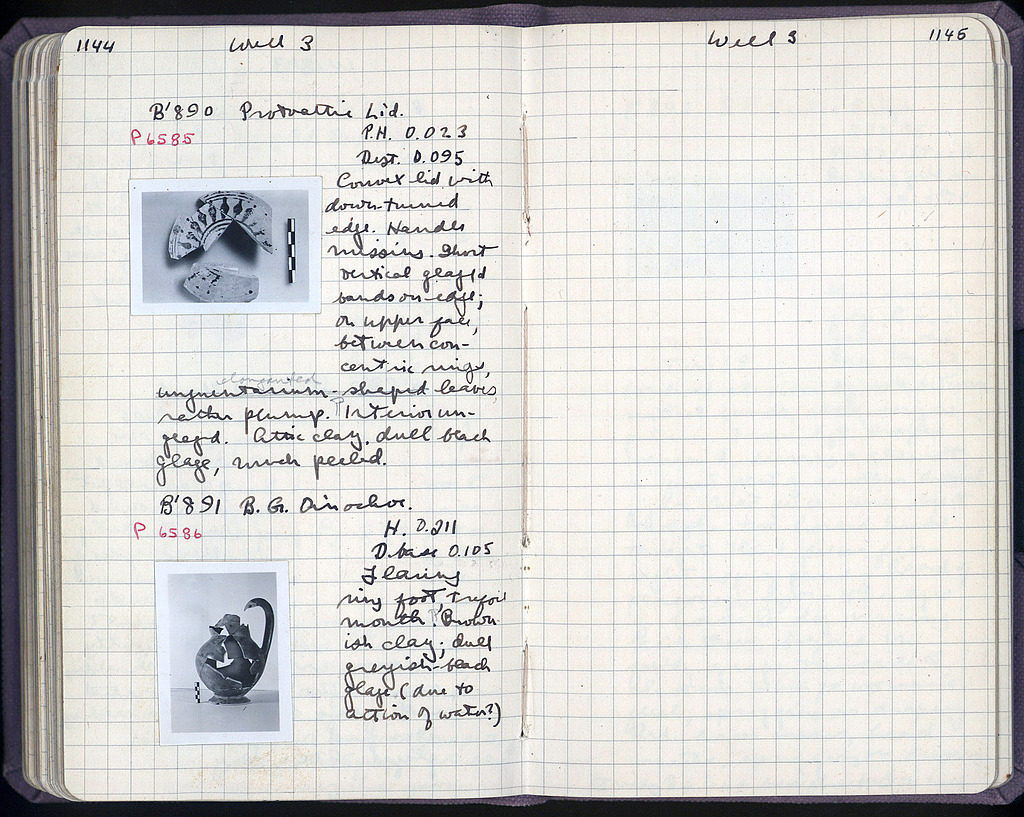 1144 Well 3
B'890 Protoattic Lid.
P 6585
P.H. 0.023
Dist. 0.095
Convex lid with
down-turned
edge. Handle
missing. Short
vertical glazed
bands on edge;
on upper face,
between con-
centric rings,
elongated
unguentarium-shaped leaves,
rather plump. Interior un-
glazed. Attic clay, dull black
glaze, much peeled.
B'891 B. G. Oinochoe.
P 6586
H. 0.211
D. base 0.105
Flaring
ring foot, trefoil
mouth. Brown-
ish clay; dull
greyish-black
glaze (due to
action of water?)
Well 3 1145